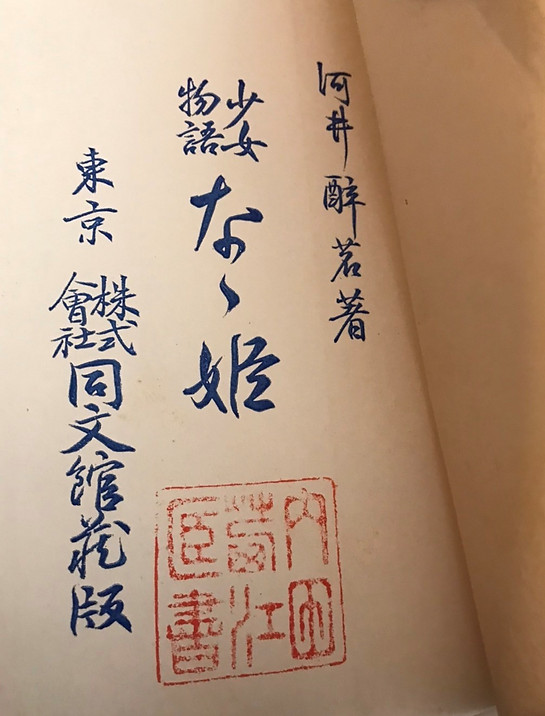 河井醉茗著
少女
物語
なゝ姫
東京
株式
會社
同文館蔵版
内
臣書